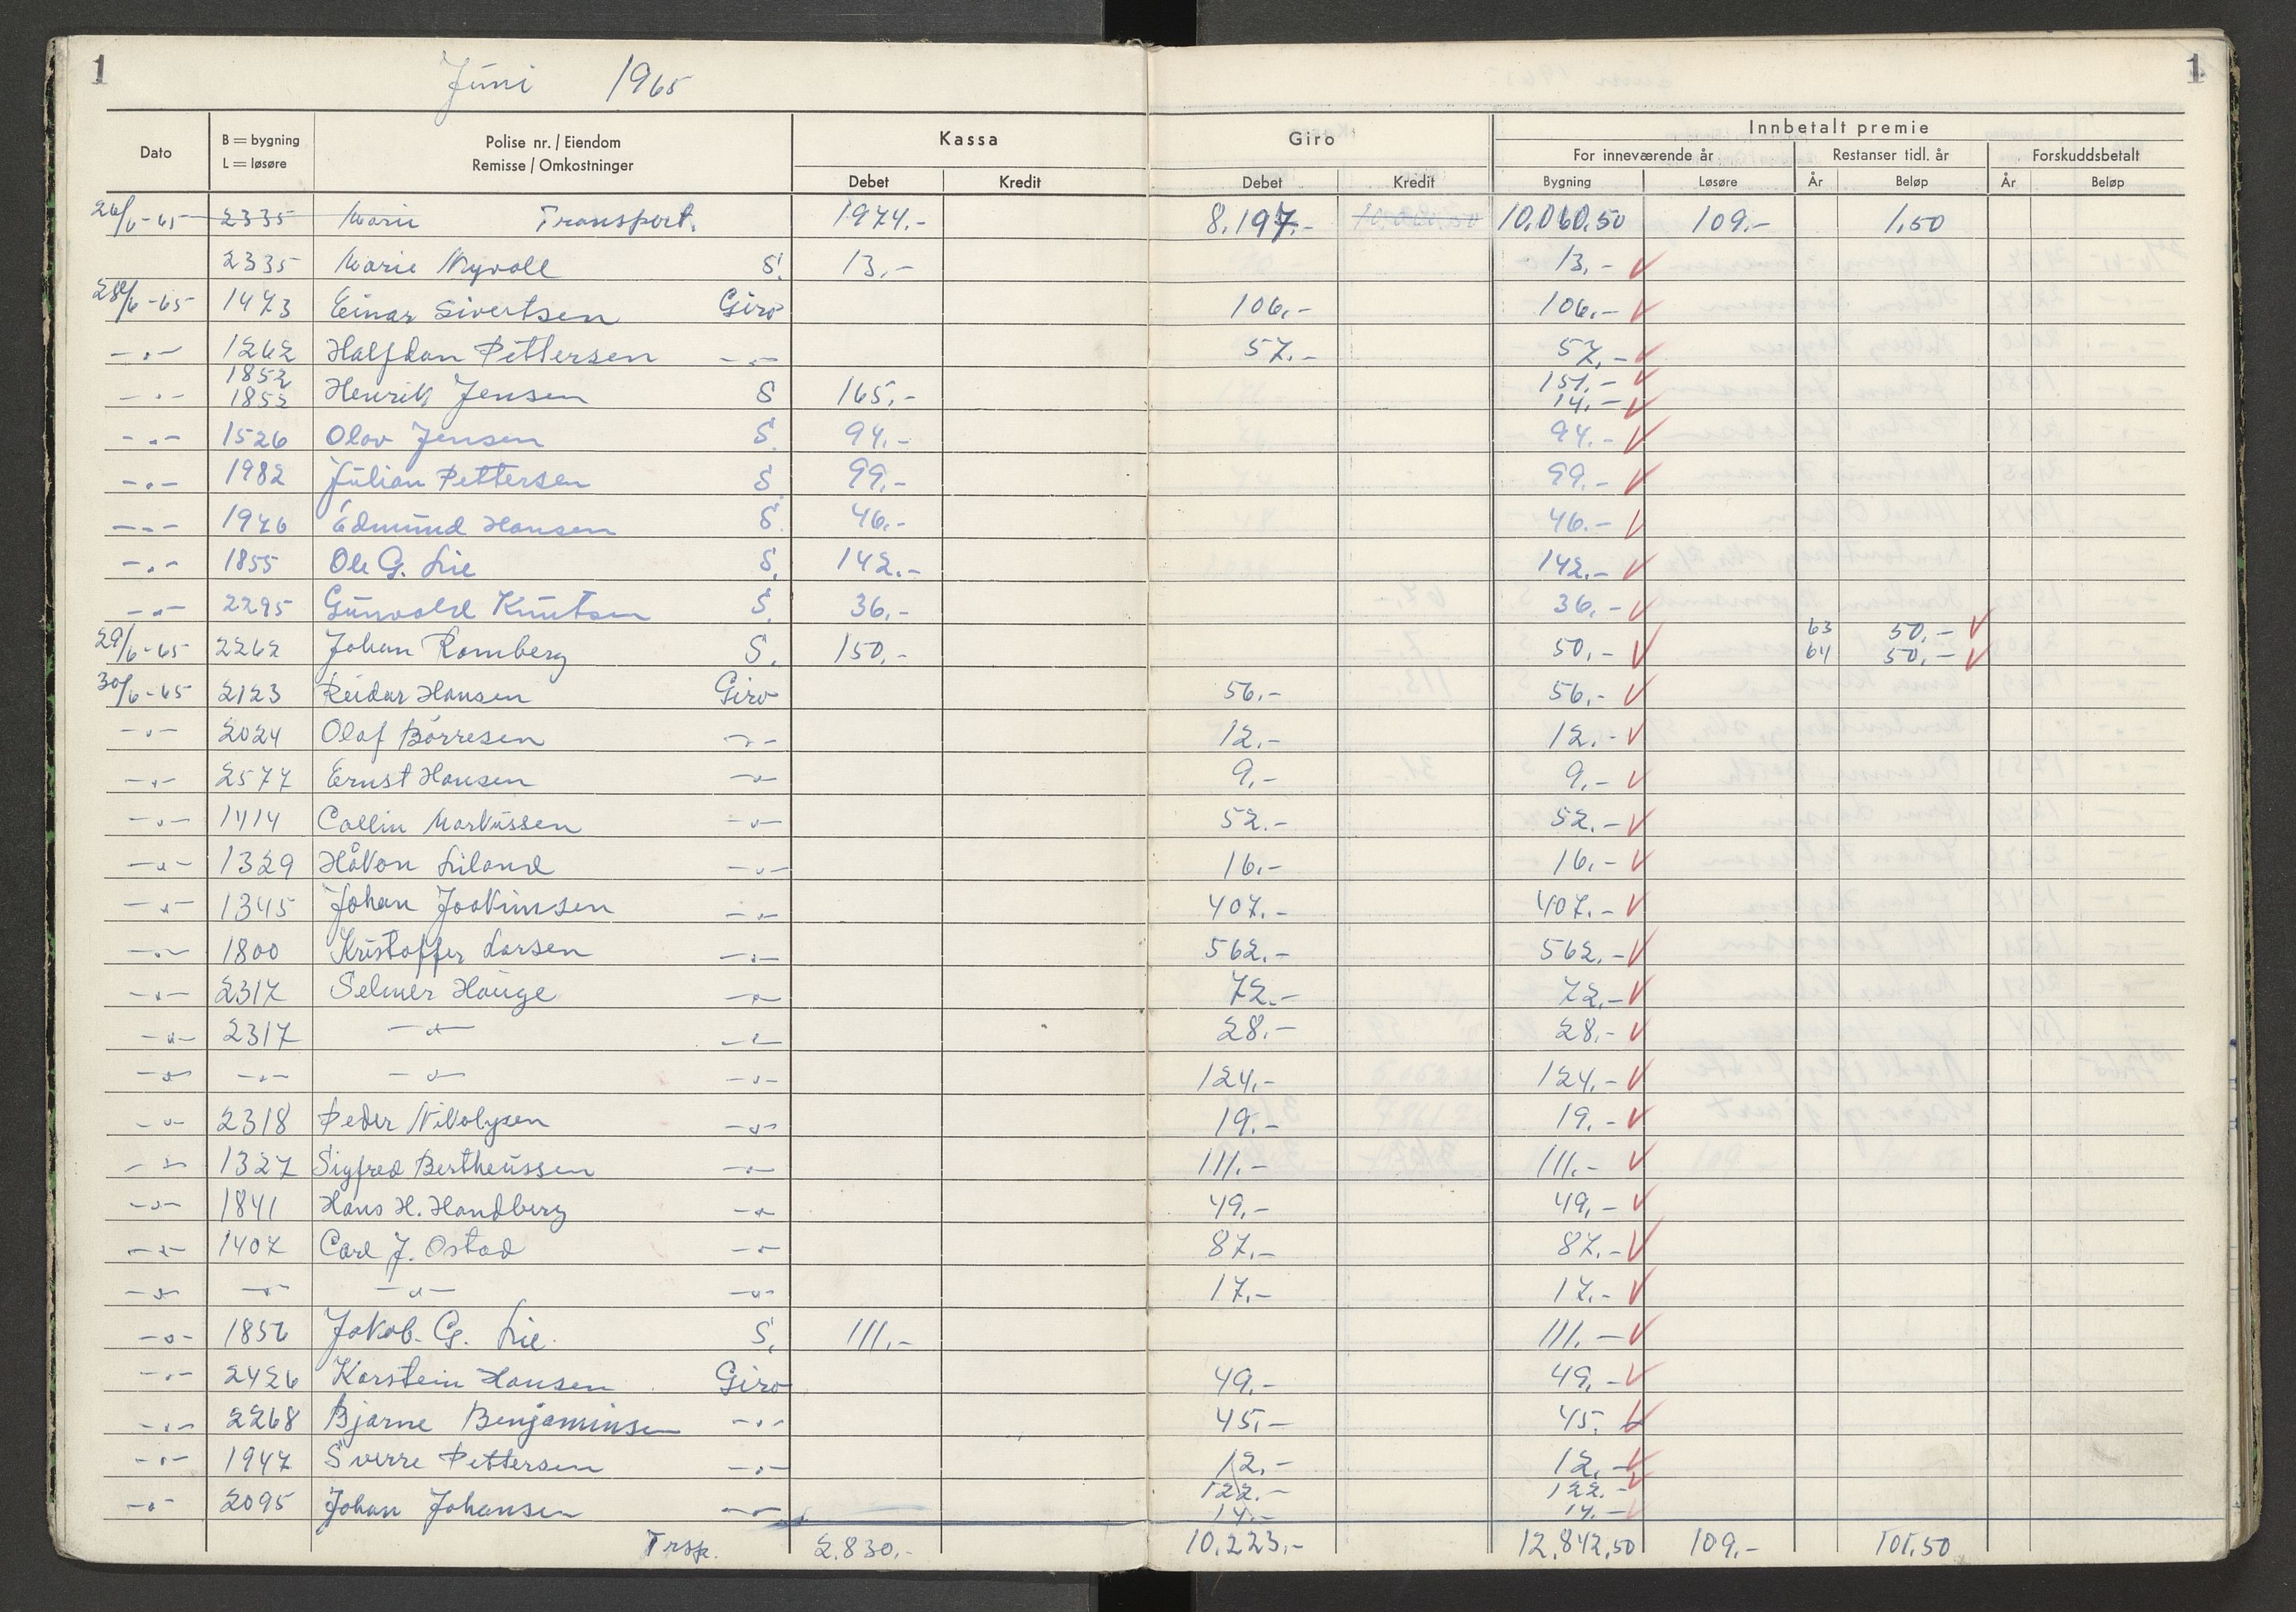 1
Juni 1965
1
Dato
B = bygning
L = løsøre
Polise nr. / Eiendom
Remisse / Omkostninger
Kassa
Debet Kredit
Giro
Debet Kredit
Innbetalt premie
For inneværende år Restanser tidl. år Forskuddsbetalt
Bygning Løsøre År Beløp År Beløp
26/6-65 2335 Marie Transport. 1974.- 8.197.- 10.060,50 10.060,50 109.- 1,50
2335 Marie Myvoll S. 13,- 13,- ✓
28/6-65 1473 Einar Sivertsen Giro 106,- 106,- ✓
-"- 1262 Halfdan Pettersen -"- 57.- 57.- ✓
-"- 1852 1853 Henrik Jensen S 165,- 151.- ✓ 14.- ✓
-"- 1526 Olav Jensen S. 94.- 94.- ✓
-"- 1982 Julian Pettersen S 99.- 99.- ✓
-"- 1976 Edmund Hansen S. 46.- 46.- ✓
-"- 1855 Ole G. Lie S. 142.- 142.- ✓
-"- 2295 Gunvald Knutsen S. 36.- 36.- ✓
29/6-65 2262 Johan Romberg S. 150.- 50,- ✓ 63 50,- ✓ 64 50,- ✓
30/6-65 2123 Reidar Hansen Giro 56.- 56.- ✓
-"- 2024 Olaf Börresen -"- 12.- 12.- ✓
-"- 2577 Ernst Hansen -"- 9,- 9,- ✓
-"- 1414 Collin Markussen -"- 52.- 52.- ✓
-"- 1329 Håkon Liland -"- 16.- 16.- ✓
-"- 1345 Johan Joakimsen -"- 407.- 407.- ✓
-"- 1800 Kristoffer Larsen -"- 562.- 562.- ✓
-"- 2317 Selmer Hauge -"- 72.- 72.- ✓
-"- 2317 -"- -"- 28.- 28.- ✓
-"- -"- -"- -"- 124.- 124.- ✓
-"- 2318 Peder Nikolysen -"- 19.- 19.- ✓
-"- 1327 Sigfred Bertheussen -"- 111.- 111.- ✓
-"- 1841 Hans H. Handberg -"- 49.- 49.- ✓
-"- 1407 Carl J. Ostad -"- 87.- 87.- ✓
-"- -"- -"- -"- 17.- 17.- ✓
-"- 1856 Jakob G. Lie. S. 111.- 111.- ✓
-"- 2426 Karstein Hansen Giro 49.- 49.- ✓
-"- 2268 Bjarne Benjaminsen -"- 45,- 45. ✓
-"- 1947 Sverre Pettersen -"- 12.- 12.- ✓
-"- 2095 Johan Johansen -"- 122.- 14.- 122.- ✓ 14.- ✓
Trsp. 2.830.- 10.223,- 12.842,50 109.- 101,50